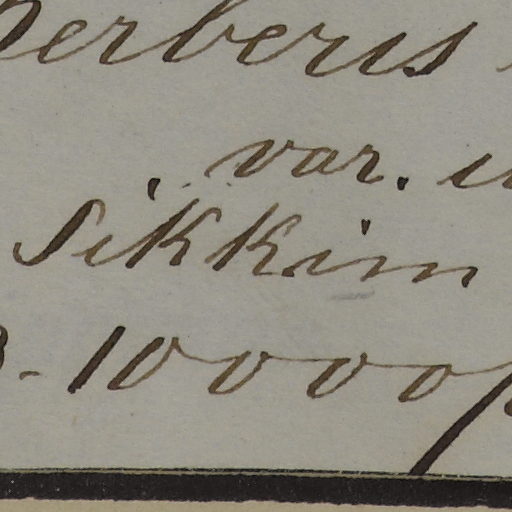 Berberis
var.
Sikkim
- 10000